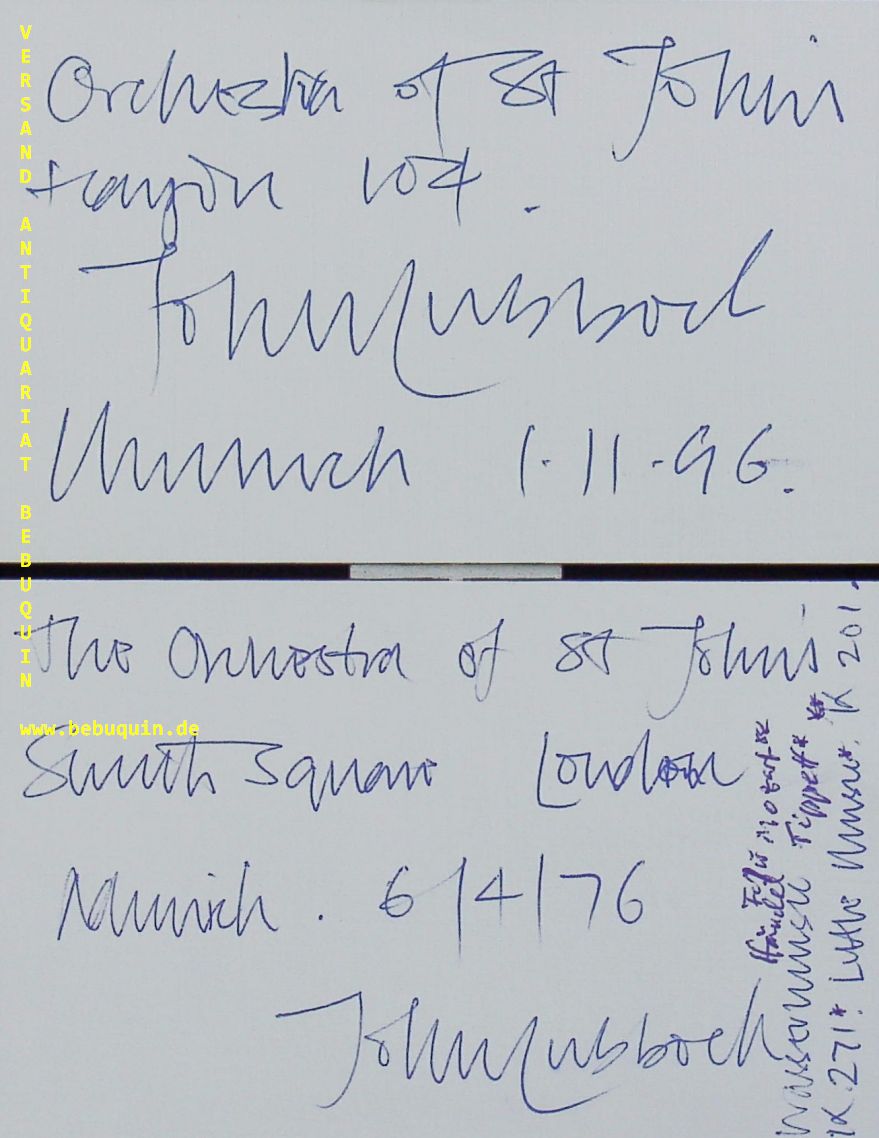 Orchestra of St John's
Haydn 104.
John Lubbock
Munich 1.11.96.
The Orchestra of St John's
Smith Square London
Munich. 6/4/76
John Lubbock
Händel Mozart**
Wassermusik Tippett**
K. 271* Little Music*. K 201.
VERSAND ANTIQUARIAT BEBUQUIN
www.bebuquin.de